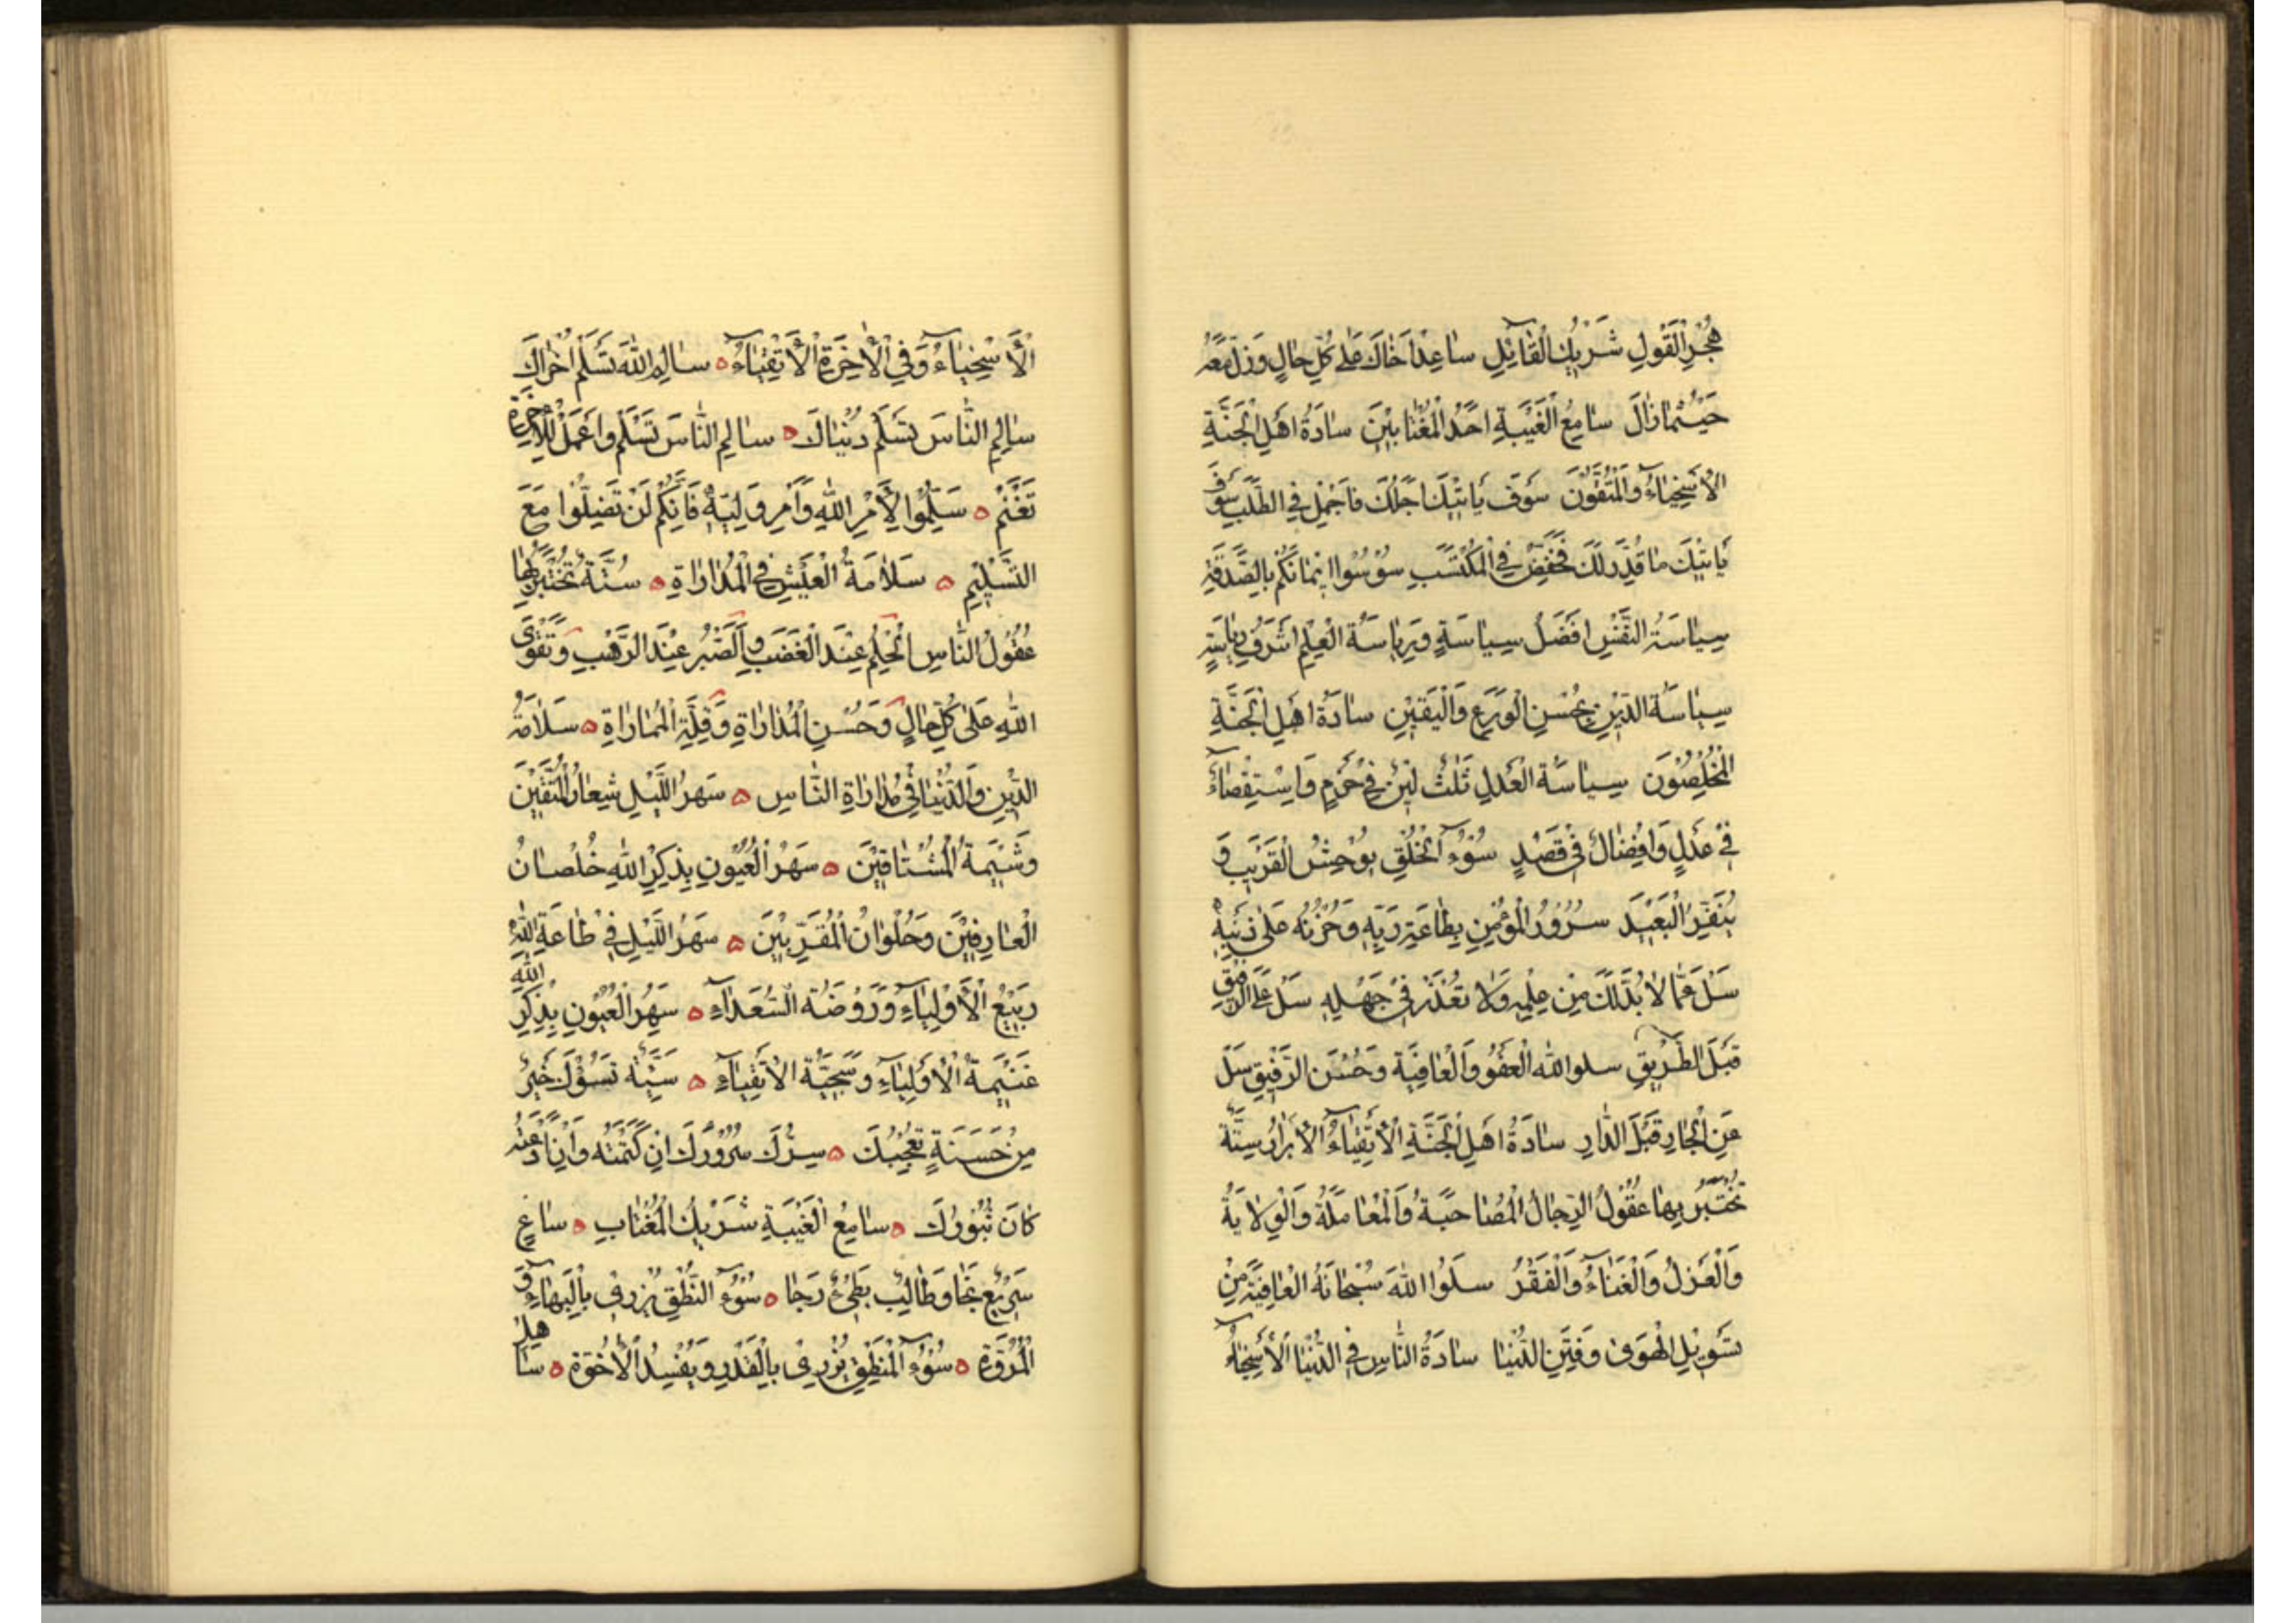 هُجْرِ الْقَوْلِ شَرِيْكُ الْقَائِلِ ساعِدْ اَخَاكَ عَلٰى كُلِّ حَالٍ وَزُلْ مَعَهُ
حَيْثُمَا زَالَ سَامِعُ الْغَيْبَةِ اَحَدُ الْمُغْتَابِيْنَ سَادَةُ اَهْلِ الْجَنَّةِ
الْاَسْخِيَاءُ وَالْمُتَّقُوْنَ سَوْفَ يَاتِيْكَ اَجَلُكَ فَاَجْمِلْ فِي الطَّلَبِ سَوْفَ
يَاتِيْكَ مَا قُدِّرَ لَكَ فَخَفِّضْ فِي الْمُكْتَسَبِ سُوْسُوا اِيْمَانَكُمْ بِالصَّدَقَةِ
سِيَاسَةُ النَّفْسِ اَفْضَلُ سِيَاسَةٍ وَرِيَاسَةُ الْعِلْمِ اَشْرَفُ رِيَاسَةٍ
سِيَاسَةُ الدِّيْنِ بِحُسْنِ الْوَرَعِ وَالْيَقِيْنِ سَادَةُ اَهْلِ الْجَنَّةِ
الْمُخْلِصُوْنَ سِيَاسَةُ الْعَدْلِ ثَلٰثٌ لِيْنٌ فِيْ حَزْمٍ وَاِسْتِقْصَاءٌ
فِيْ عَدْلٍ وَاِفْضَالٌ فِيْ قَصْدٍ سُوْءُ الْخُلْقِ يُوْحِشُ الْقَرِيْبَ وَ
يُنَفِّرُ الْبَعِيْدَ سُرُوْرُ الْمُؤْمِنِ بِطَاعَةِ رَبِّهٖ وَحُزْنُهُ عَلٰى ذَنْبِهٖ
سَلْ عَمَّا لَا بُدَّ لَكَ مِنْ عِلْمِهٖ وَلَا تُعْذَرُ فِيْ جَهْلِهٖ سَلْ عَنِ الرَّفِيْقِ
قَبْلَ الطَّرِيْقِ سلوا اللهَ الْعَفْوَ وَالْعَافِيَةَ وَحُسْنَ التَّوْفِيْقِ سَلْ
عَنِ الْجَارِ قَبْلَ الدَّارِ سَادَةُ اَهْلِ الْجَنَّةِ الْاَتْقِيَاءُ الْاَبْرَارُ سِتَّةٌ
تُخْتَبَرُ بِهَا عُقُوْلُ الرِّجَالِ الْمُصَاحَبَةُ وَالْمُعَامَلَةُ وَالْوِلَايَةُ
وَالْعَزْلُ وَالْغَنَاءُ وَالْفَقْرُ سَلُوا اللهَ سُبْحَانَهُ الْعَافِيَةَ مِنْ
تَسْوِيْلِ الْهَوٰى وَفِتَنِ الدُّنْيَا سَادَةُ النَّاسِ فِي الدُّنْيَا الْاَسْخِيَاءُ
الْاَسْخِيَاءُ وَفِي الْاٰخِرَةِ الْاَتْقِيَاءُ ه سَالِمِ اللهَ تَسْلَمْ اُخْرَاكَ
سَالِمِ النَّاسَ تَسْلَمْ دُنْيَاكَ ه سَالِمِ النَّاسَ تَسْلَمْ وَاعْمَلْ لِلْاٰخِرَةِ
تَغْنَمْ ه سَلِّمُوْا لِاَمْرِ اللهِ وَاَمْرِ وَلِيِّهٖ فَاِنَّكُمْ لَنْ تَضِلُّوْا مَعَ
التَّسْلِيْمِ ه سَلَامَةُ الْعَيْشِ فِي الْمُدَارَاةِ ه سِتَّةٌ تُخْتَبَرُ بِهَا
عُقُوْلُ النَّاسِ الْحِلْمُ عِنْدَ الْغَضَبِ وَالصَّبْرُ عِنْدَ الرَّهْبِ وَتَقْوَى
اللهِ عَلٰى كُلِّ حَالٍ وَحُسْنِ الْمُدَارَاةِ وَقِلَّةِ الْمُمَارَاةِ ه سَلَامَةُ
الدِّيْنِ وَالدُّنْيَا فِيْ مُدَارَاةِ النَّاسِ ه سَهَرُ اللَّيْلِ شِعَارُ الْمُتَّقِيْنَ
وَشِيْمَةُ الْمُشْتَاقِيْنَ ه سَهَرُ الْعُيُوْنِ بِذِكْرِ اللهِ خُلْصَانُ
الْعَارِفِيْنَ وَحُلْوَانُ الْمُقَرَّبِيْنَ ه سَهَرُ اللَّيْلِ فِيْ طَاعَةِ اللهِ
رَبِيْعُ الْاَوْلِيَاءِ وَرَوْضَةُ السُّعَدَاءِ ه سَهَرُ الْعُيُوْنِ بِذِكْرِ اللهِ
غَنِيْمَةُ الْاَوْلِيَاءِ وَسَجِيَّةُ الْاَتْقِيَاءِ ه سَيِّئَةٌ تَسُوْؤُكَ خَيْرٌ
مِنْ حَسَنَةٍ تُعْجِبُكَ ه سِرُّكَ سُرُوْرُكَ اِنْ كَتَمْتَهُ وَاِنْ اَذَعْتَهُ
كَانَ ثُبُوْرَكَ ه سَامِعُ الْغَيْبَةِ شَرِيْكُ الْمُغْتَابِ ه سَاعٍ
سَرِيْعٌ نَجَا وَطَالِبٌ بَطِيْءٌ رَجَا ه سُوْءُ النُّطْقِ يُزْرِيْ بِالْبَهَاءِ وَ
الْمُرُوَّةِ ه سُوْءُ الْمَنْطِقِ يُزْرِيْ بِالْقَدْرِ وَيُفْسِدُ الْاُخُوَّةَ ه سَاهِلْ